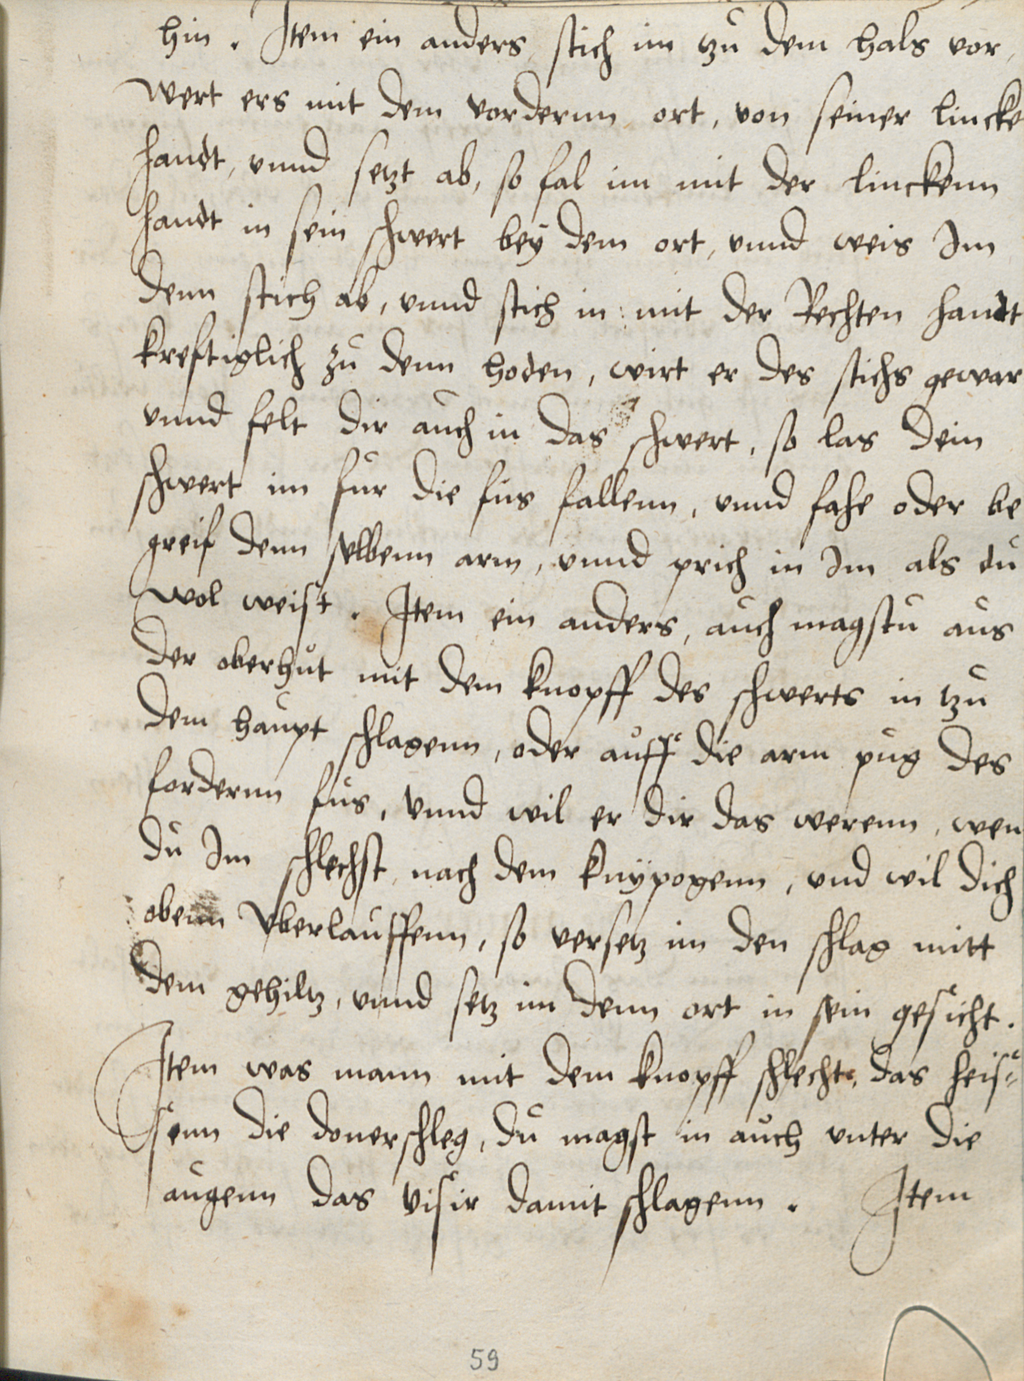 hin . Item ein anders stich im tzu dem hals vor,
wert ers mit dem vordernn ort, von seiner lincke
handt, vnnd setzt ab, so fal im mit der linckenn
handt in sein schwert bey dem ort, vnnd weis Im
denn stich ab, vnnd stich in mit der Rechten handt
kreftiglich zu denn hoden, wirt er des stichs gewar
vnnd felt dir auch in das schwert, so las dein
schwert im fur die fus fallenn, vnnd fahe oder be
greif denn selbenn arm, vnnd prich in Im als du
wol weist . Item ein anders, auch magstu aus
der oberhut mit dem knopff des schwerts in tzu
dem haupt schlagenn, oder auff die arm pug des
fordernn fus, vnnd wil er dir das werenn, wen
du Im schlechst nach dem knypogenn, vnd wil dich
obenn vberlauffenn, so versetz im den schlag mitt
dem gehiltz, vnnd setz im denn ort in sein gesicht.
Item was mann mit dem knopff schlecht, das heis-
senn die donerschleg, du magst in auch vnter die
augenn das visir damit schlagenn . Item
59